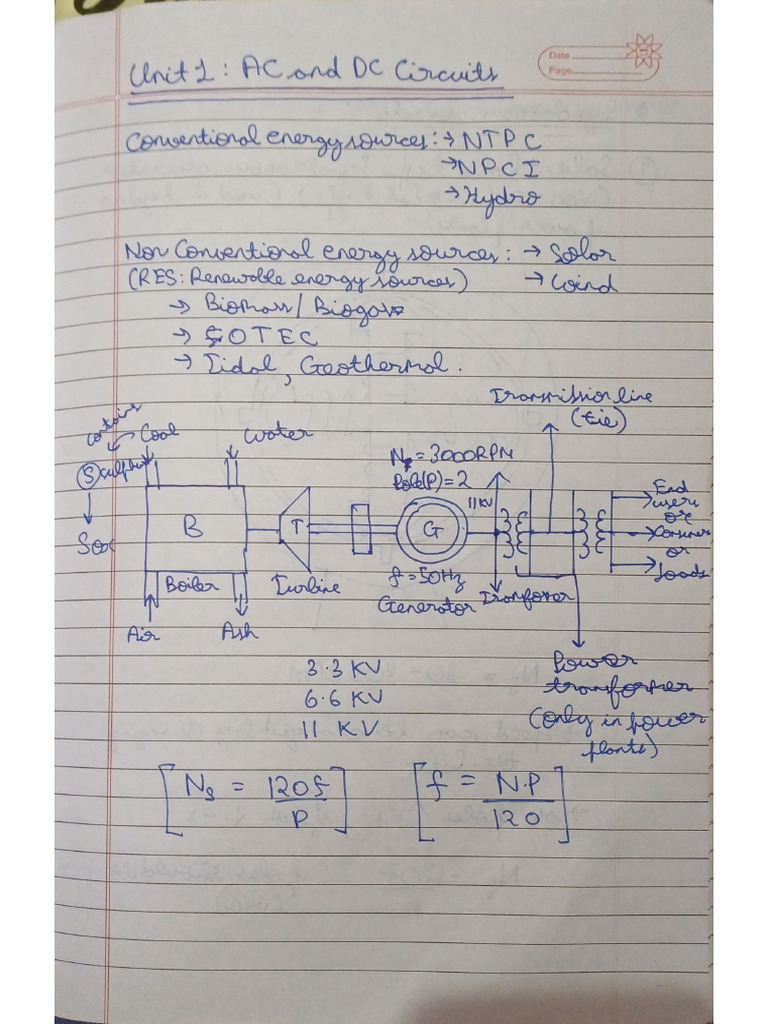 Date
Page
Unit 1: AC and DC Circuits
Conventional energy sources: → NTPC
→ NPCI
→ Hydro
Non Conventional energy sources: → Solar
(RES: Renewable energy sources) → Wind
→ Biomass / Biogas
→ OTEC
→ Tidal, Geothermal.
Transmission line
(tie)
contains
Coal
Water
(S) sulphur
SOx
B
Boiler
Air
Ash
T
Turbine
Ns = 3000 RPM
Pole(P) = 2
G
f = 50Hz
Generator
11 KV
Tranfomer
End
users
or
Consumer
or
loads
Power
transformer
(only in power
plants)
3.3 KV
6.6 KV
11 KV
[Ns = 120f / P] [f = N.P / 120]